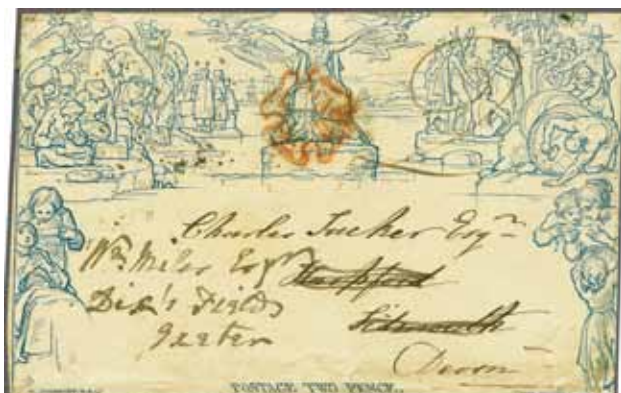 Charles Tucker Esqr
Wm Miles Esqr
Dix's Fields
Sidmouth
Exeter
Devon
POSTAGE TWO PENCE.